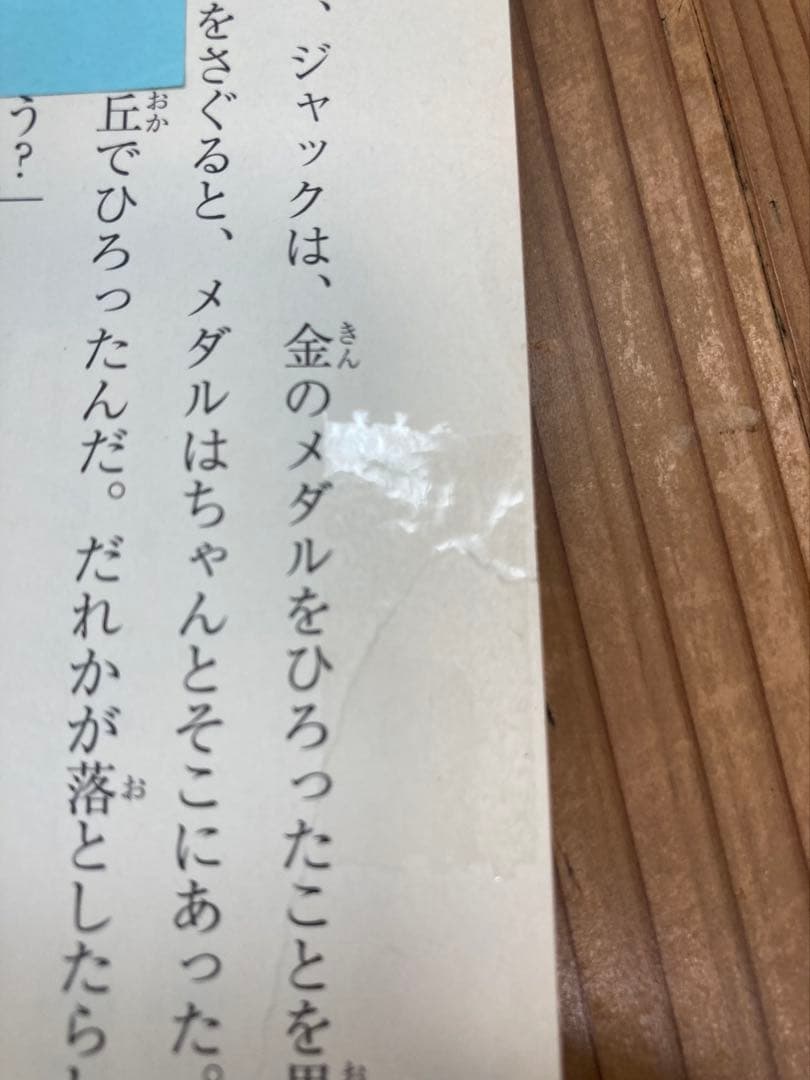 、ジャックは、金のメダルをひろったことを
をさぐると、メダルはちゃんとそこにあった。
丘でひろったんだ。だれかが落としたらし
う?―